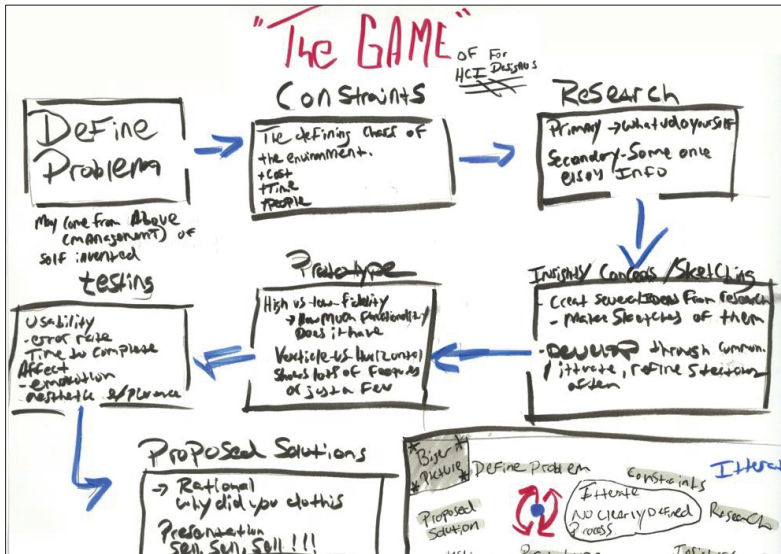 "The GAME"
OF For
HCI Designers
Define
Problem
May come from Above
(management) of
self invented
Constraints
The defining chars of
the environment.
+Cost
+Time
+People
Research
Primary → what u do yourself
Secondary - Some one
elses Info
Insights/Concepts/Sketching
- Creat several Ideas From research
- Make Sketches of them
- Develop through commun.
/ itterate, refine
often
Prototype
High vs low fidelity
→ How Much functionality
Does it have
Verticle vs Horizontal
Shows lots of Features
or just a Few
testing
Usability
- error rate
Time to complete
Affect
- emotion
aesthetic experience
Proposed Solutions
→ Rational
why did you do this
Presentation
Sell, Sell, Sell !!!
*Biger*
*Picture*
Define Problem
Constraints
Itterate
NO clearly Defined
Process
Research
Proposed
Solution